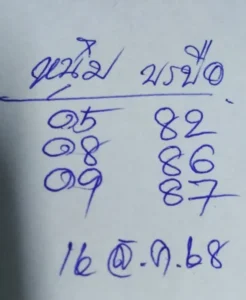 หนุ่ม บรบือ
05 82
08 86
09 87
16 ต.ค.68